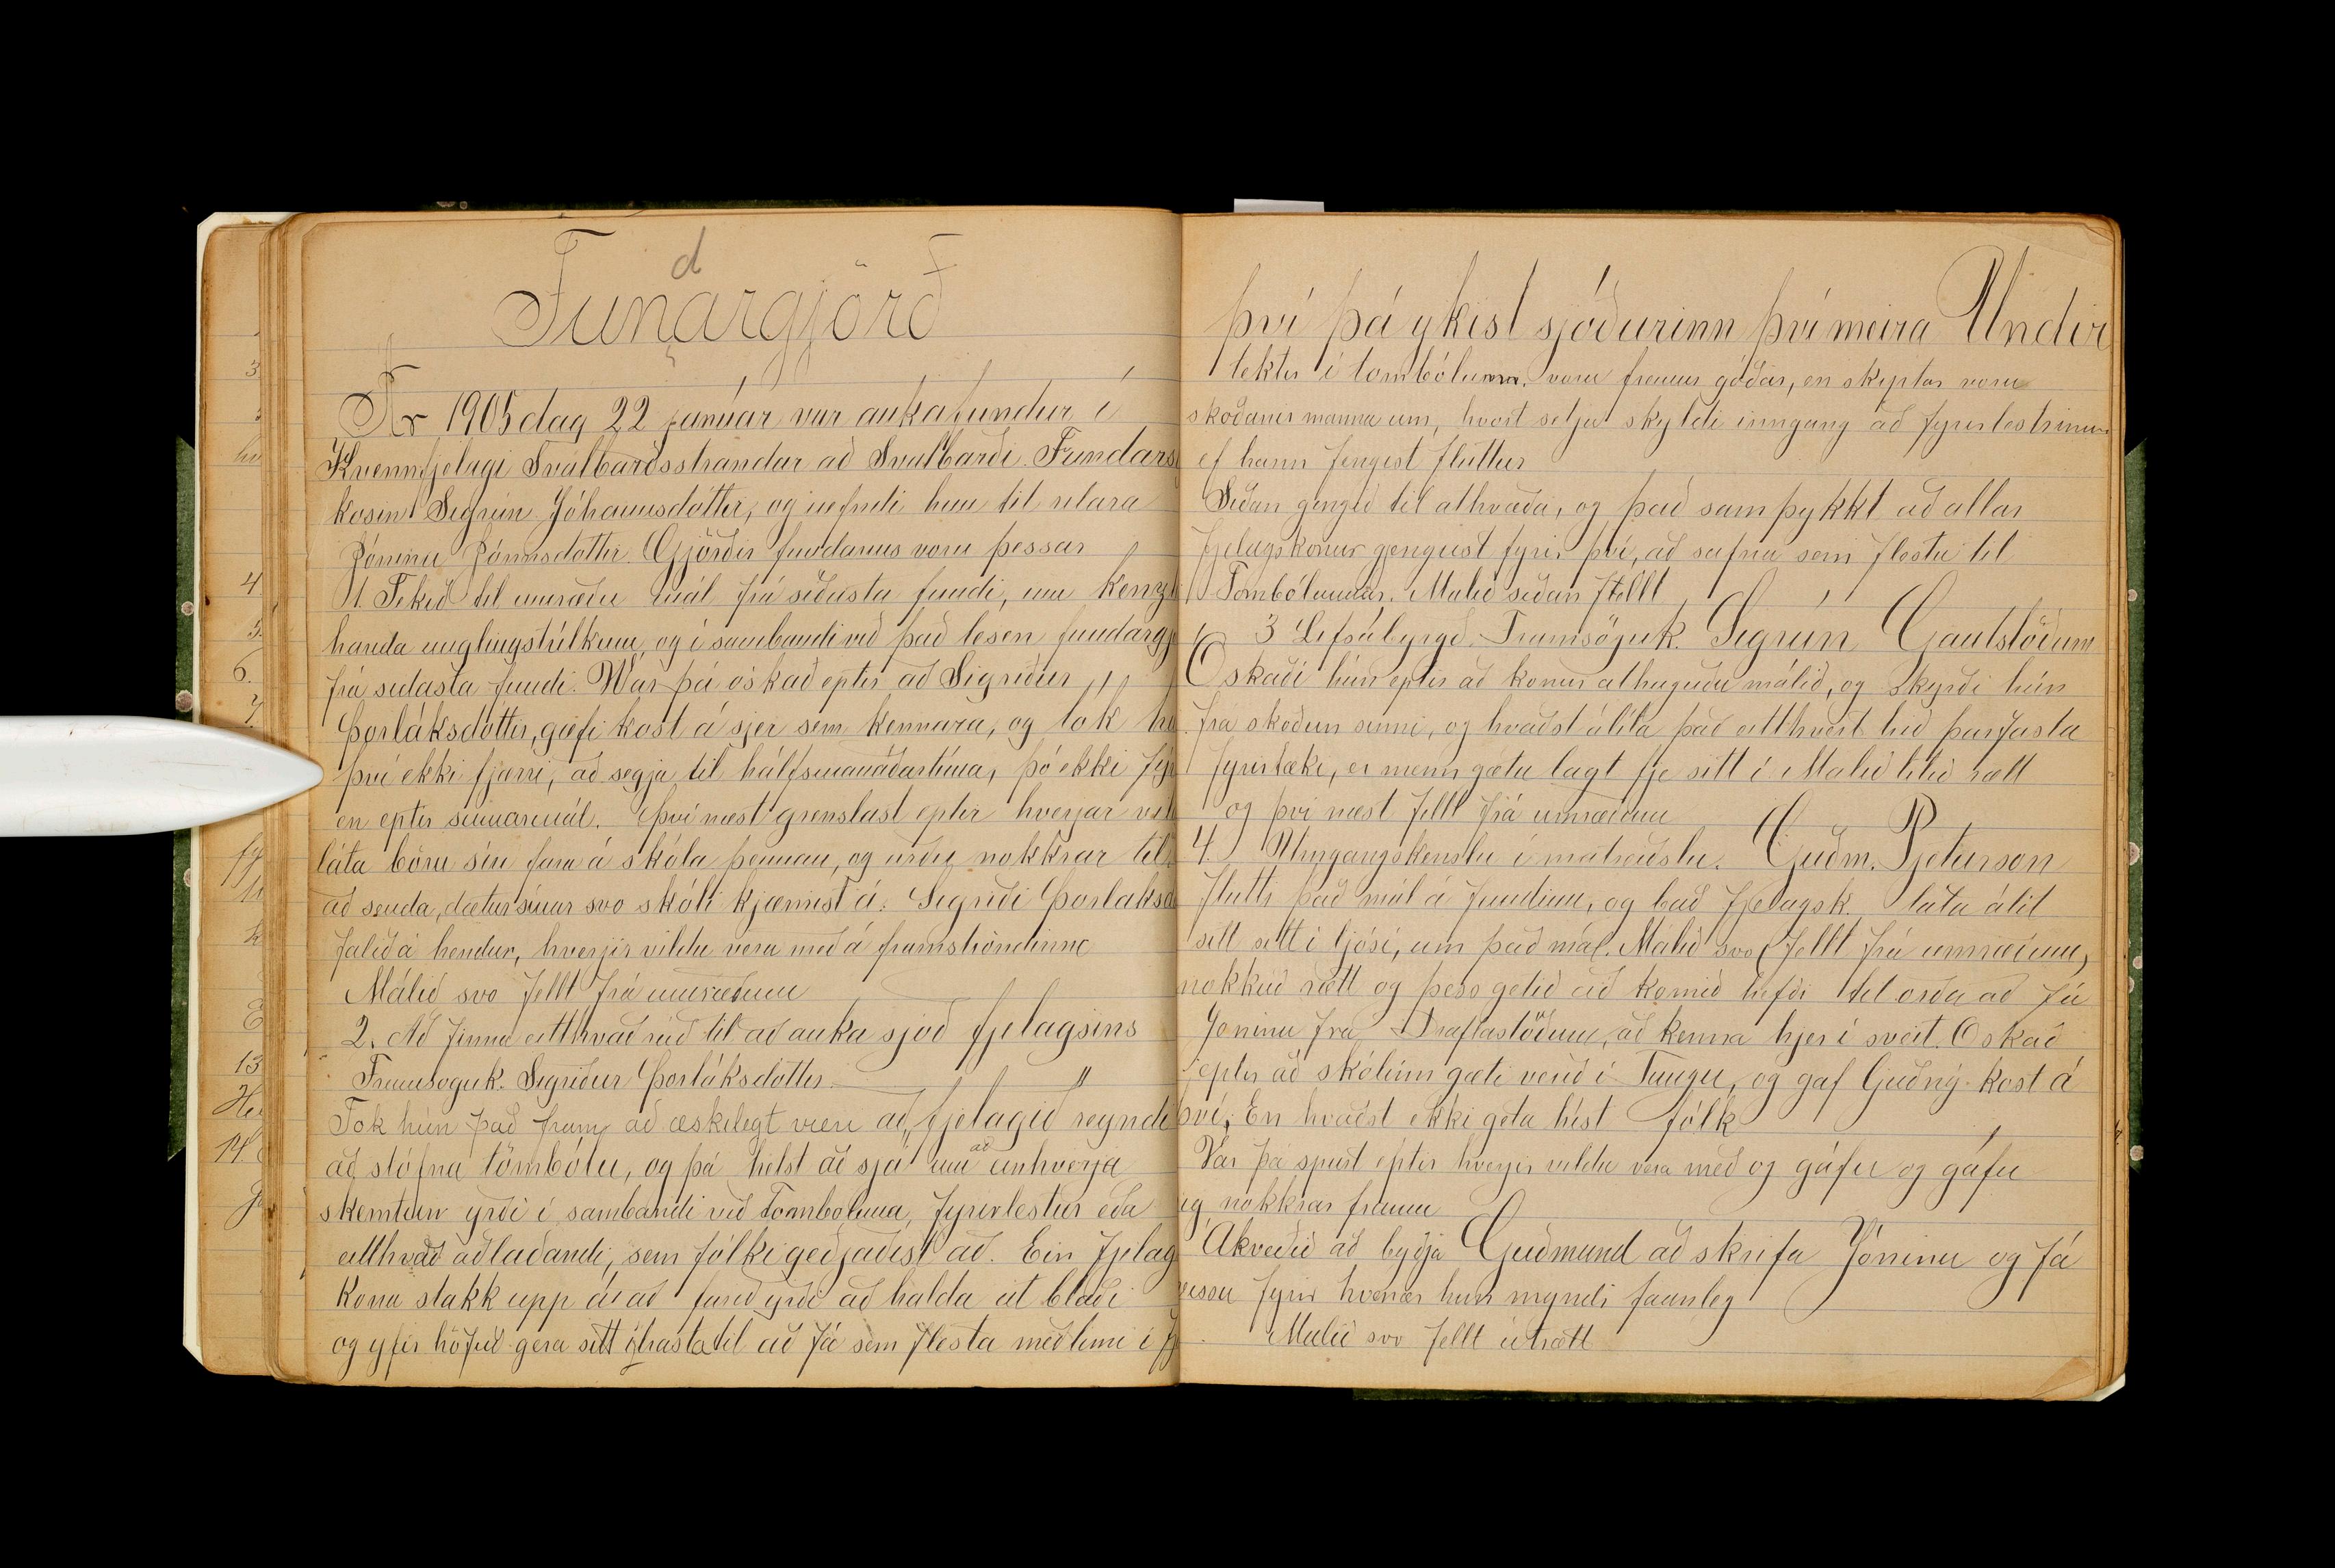 Fundargjörð
Ár 1905 dag 22 janúar var aukafundur í
Kvennfjelagi Svalbarðsstrandar að Svalbarði. Fundars
kosin Sigrún Jóhannsdóttir, og nefndi hun til ritara
Jóninu Jónsdóttir. Gjörðir fundarins voru þessar
1. Tekið til umræðu mál frá síðasta fundi, um kenzl
handa unglingstúlkum, og í sambandi við það lesen fundargj
frá síðasta fundi. Var þá óskað eptir að Sigríður
Þorláksdóttir, gæfi kost á sjer sem kennara, og tók hú
því ekki fjarri, að segja til hálfsmánaðartíma, þó ekki fyr
en eptir sumarmál. Því næst grenslast eptir hverjar vil
láta börn sín fara á skóla þennan, og urðu nokkrar til
að senda, dætur sínar svo skóli kjæmist á. Sigríði Þorláksd
falið á hendur, hverjir vildu vera með á framströndinne
Málið svo fellt frá umræðum
2. Að finna eitthvað ráð til að auka sjóð fjelagsins
Framsöguk. Sigríður Þorláksdóttir
Tók hún það fram að æskilegt væri að fjelagið reyndi
að stofna tombólu, og þá helst að sjá um að einhverja
skemtun yrði í sambandi við Tombóluna, fyrirlestur eða
eitthvað aðlaðandi, sem fólki geðjaðist að. Ein fjelag
kona stakk upp á að farið yrði að halda út blaði
og yfir höfuð gera sitt ýtrasta til að fá sem flesta meðlimi í fj
því þá ykist sjóðurinn því meira Undir
tektir í tombóluna. voru fremur góðar, en skiptar voru
skoðanir manna um, hvort setja skyldi inngang að fyrirlestrinum
ef hann fengist fluttur
Síðan gengið til atkvæða, og það samþykkt að allar
fjelagskonur gengust fyrir því, að safna sem flestu til
Tombólunnar. Málið síðan fellt
3 Lífsábyrgð. Framsöguk. Sigrún Gautstöðum
Óskaði hún eptir að konur athuguðu málið, og skyrði hún
frá skoðun sinni, og kvaðst álíta það eitthvert hið þarfasta
fyrirtæki, er menn gætu lagt fje sitt í. Málið litið rætt
og því næst fellt frá umræðum
4. Umgangskenslu í matreiðslu. Guðm. Pjeturson
flutti það mál á fundinum, og bað fjelagsk. láta álit
sitt sitt í ljósi, um það mál. Málið svo fellt frá umræðum,
nokkuð rætt og þess getið að komið hefði til orða að fá
Jónínu frá Draflastöðum, að kenna hjer í sveit. Óskað
eptir að skólinn gæti verið í Tungu, og gaf Guðný kost á
því, En kvaðst ekki geta hist fólk
Var þá spurt eptir hverjir vildu vera með og gáfu og gáfu
sig nokkrar framm
Ákveðið að byðja Guðmund að skrifa Jónínu og fá
vissu fyrir hvenær hun myndi faanleg
Málið svo fellt útrætt